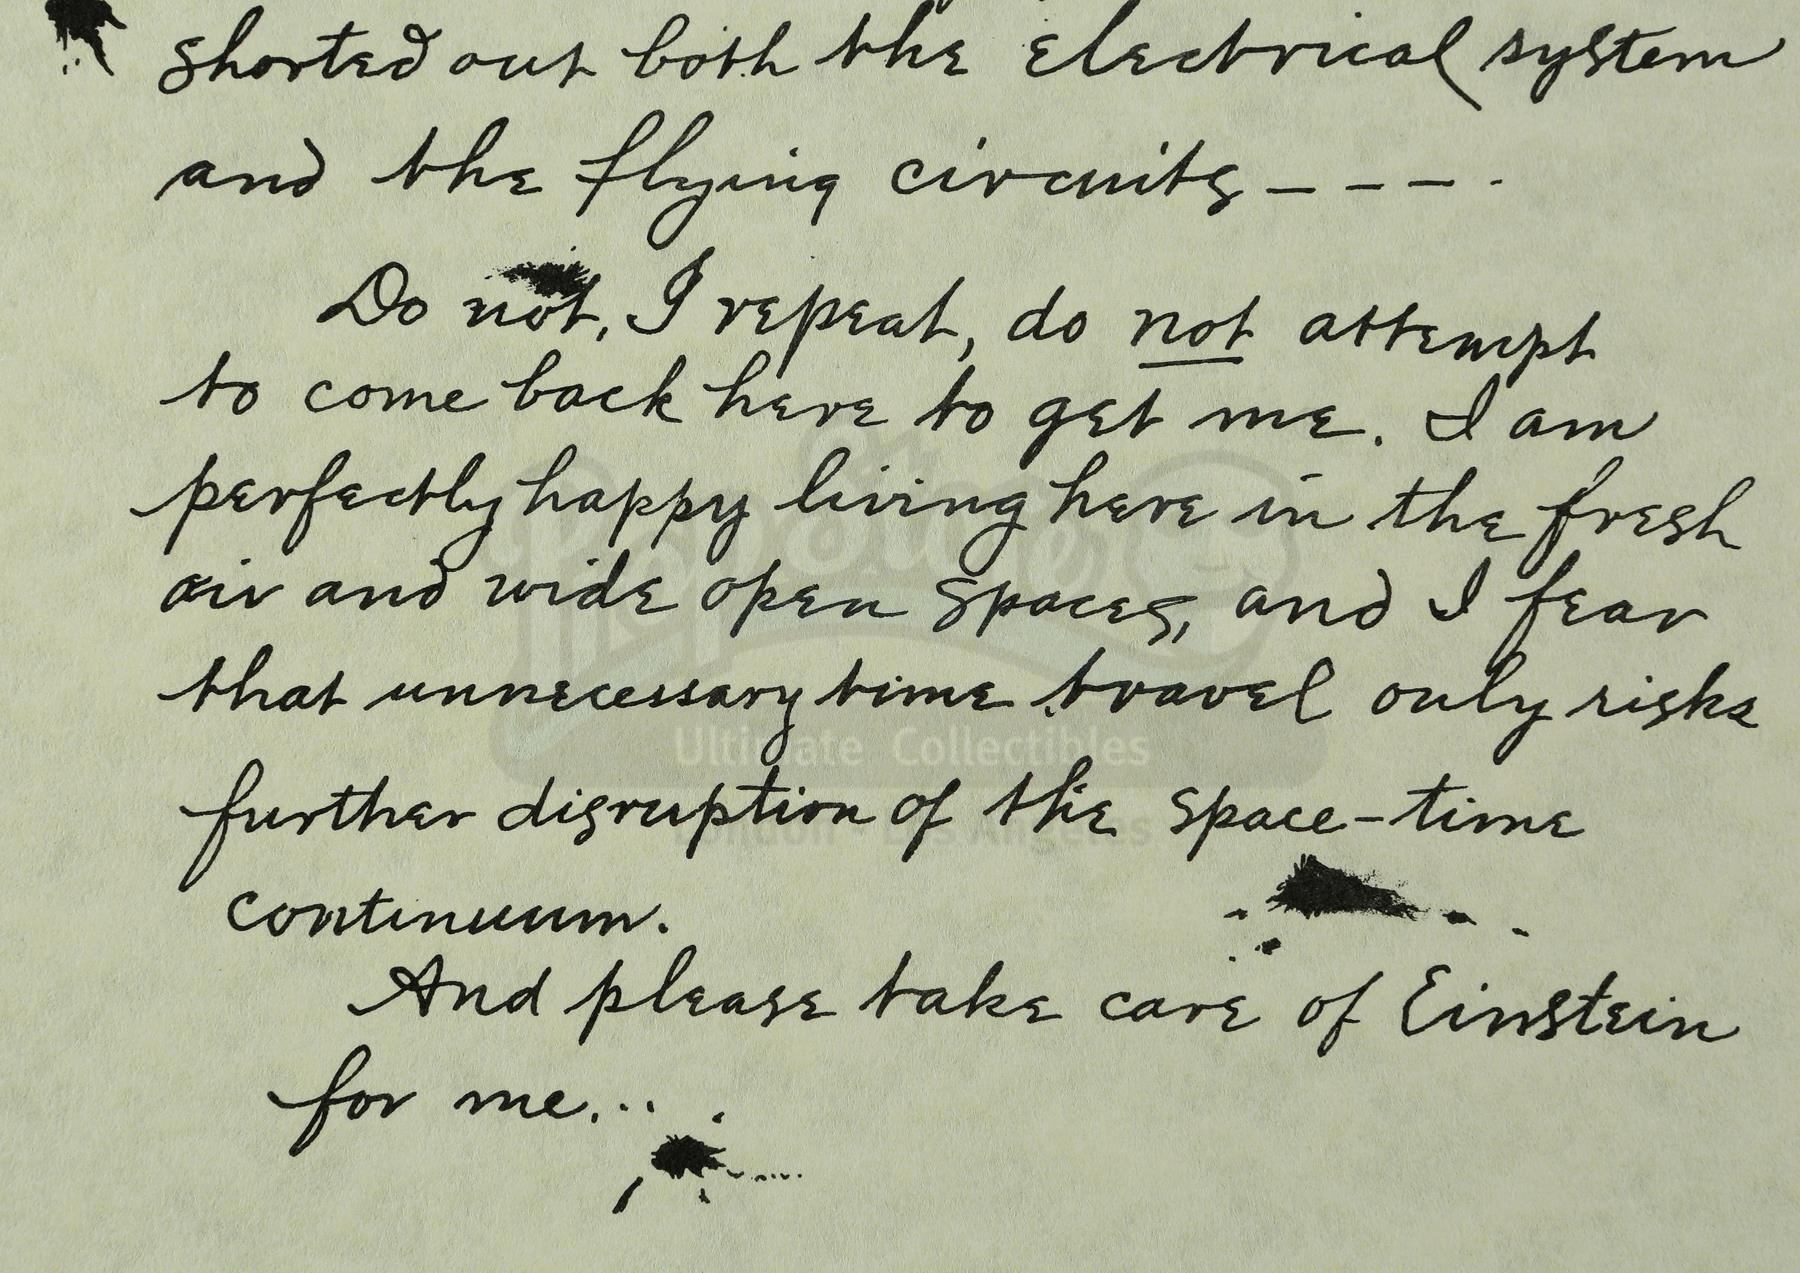 shorted out both the electrical system
and the flying circuits - - - .
Do not, I repeat, do not attempt
to come back here to get me. I am
perfectly happy living here in the fresh
air and wide open spaces, and I fear
that unnecessary time travel only risks
further disruption of the space-time
continuum.
And please take care of Einstein
for me...
Propstore
Ultimate Collectibles
London Los Angeles